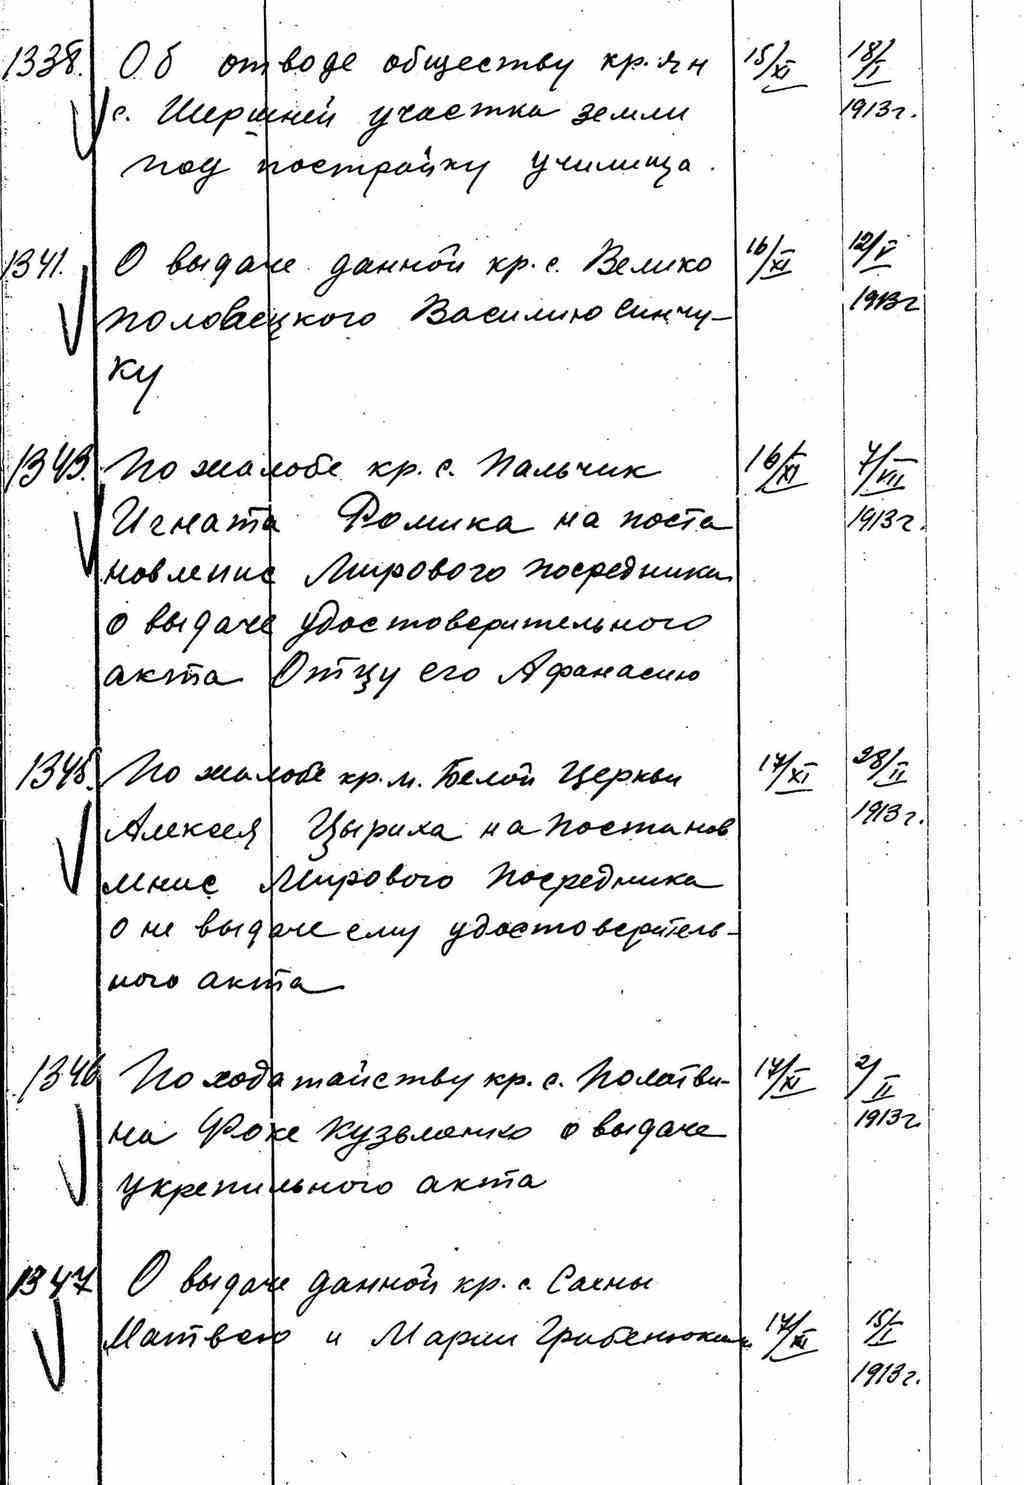 1338. Об отводе обществу кр.ян 15/XI 18/I
с. Шершней участка земли 1913г.
под постройку училища.
1341. О выдаче данной кр. с. Велико 16/XI 12/V
половецкого Василию Синчу- 1913г
ку
1343. По жалобе кр. с. Пальчик 16/XI 7/VIII
Игната Ромика на поста 1913г.
новление Мирового посредника
о выдаче удостоверительного
акта Отцу его Афанасию
1345. По жалобе кр. м. Белой Церкви 17/XI 28/II
Алексея Цыриха на постанов 1913г.
ление Мирового Посредника
о не выдаче ему удостоверитель-
ного акта
1346 По ходатайству кр. с. Полстви- 17/XI 2/II
на Фоке Кузьменко о выдаче 1913г.
укрепильного акта
1347 О выдаче данной кр. с. Саены
Матвею и Марии Грибенюкам 17/XI 15/I
1913г.